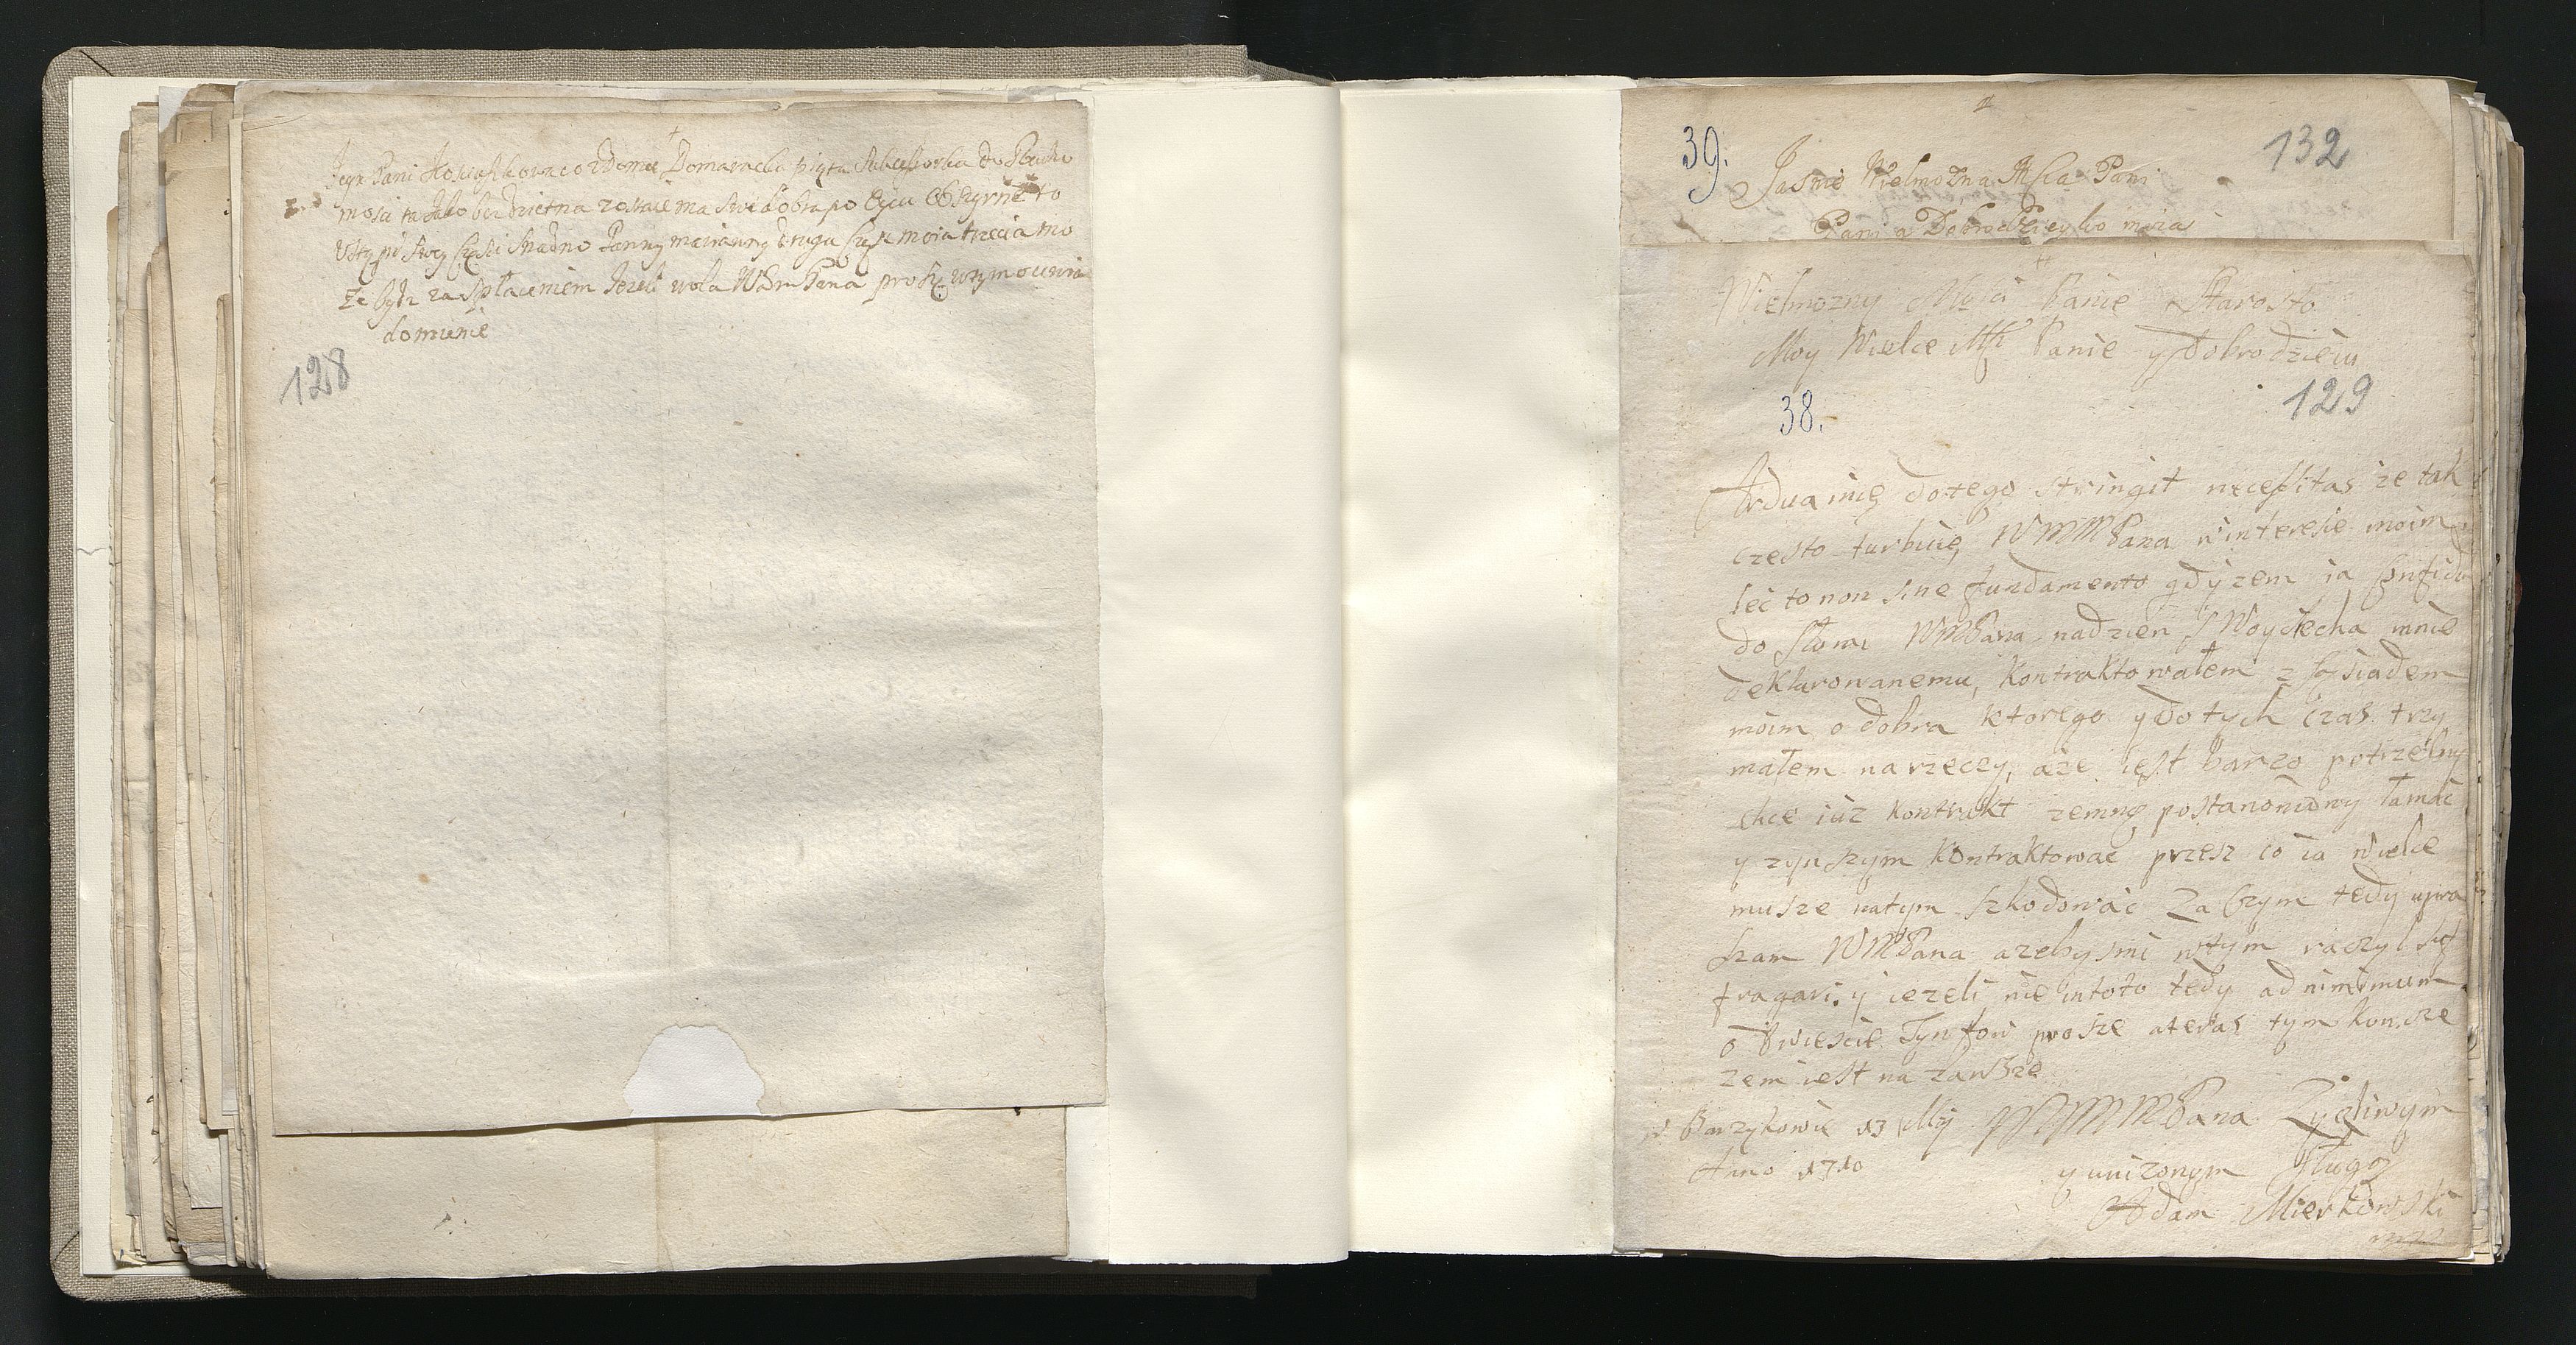 +
Jeyx Pani Domaracka piąta do Rucho
mosci ta jako bezdzietna zostaie ma swe dobra po Oycu to
ustąpi swey części Panny marianny druga moia trzecia mo
że bydz za spłaceniem Jezeli wola WSM Pana proszę
domienie
128
39.
132
Jasnie Wielmozna Msca Pani
Pani a Dobrodzieyko moia
Wielmozny Mości Panie Starosto
Moy Wielce Mci Panie y Dobrodzieiu
38.
129
Ardua mię dotego stringit necessitas ze tak
czesto turbuię WMMPana w interesie moim
lec to non sine fundamento gdyzem ia
do słowa WMPana nadzien S Woyciecha mnie
deklarowanemu, kontraktowałem z sąsiadem
moim o dobra ktorego y do tych czas trzy
małem narzeczy, aze iest barzo potrzebny
chce iuz kontrakt zemną postanowiony łamac
y zynszym kontraktowac przesz co ia wielce
musze natym szkodowac Za czym tedy upra
szam WMPana azebysmi wtym raczył suf
fragari. y iezeli nie intoto tedy ad minimum
o dwiescie Tynfow prosze ateras tym koncze
zem iest na zawsze
w Barzykowie 13 Mij WMMMPana Zyczliwym
Anno 1710 y unizonym sługą
Adam Mierkowski